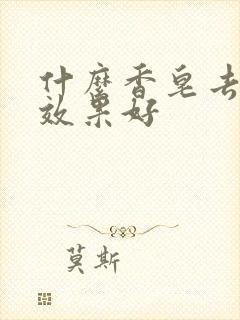 什麽香皂去
效果好
莫斯